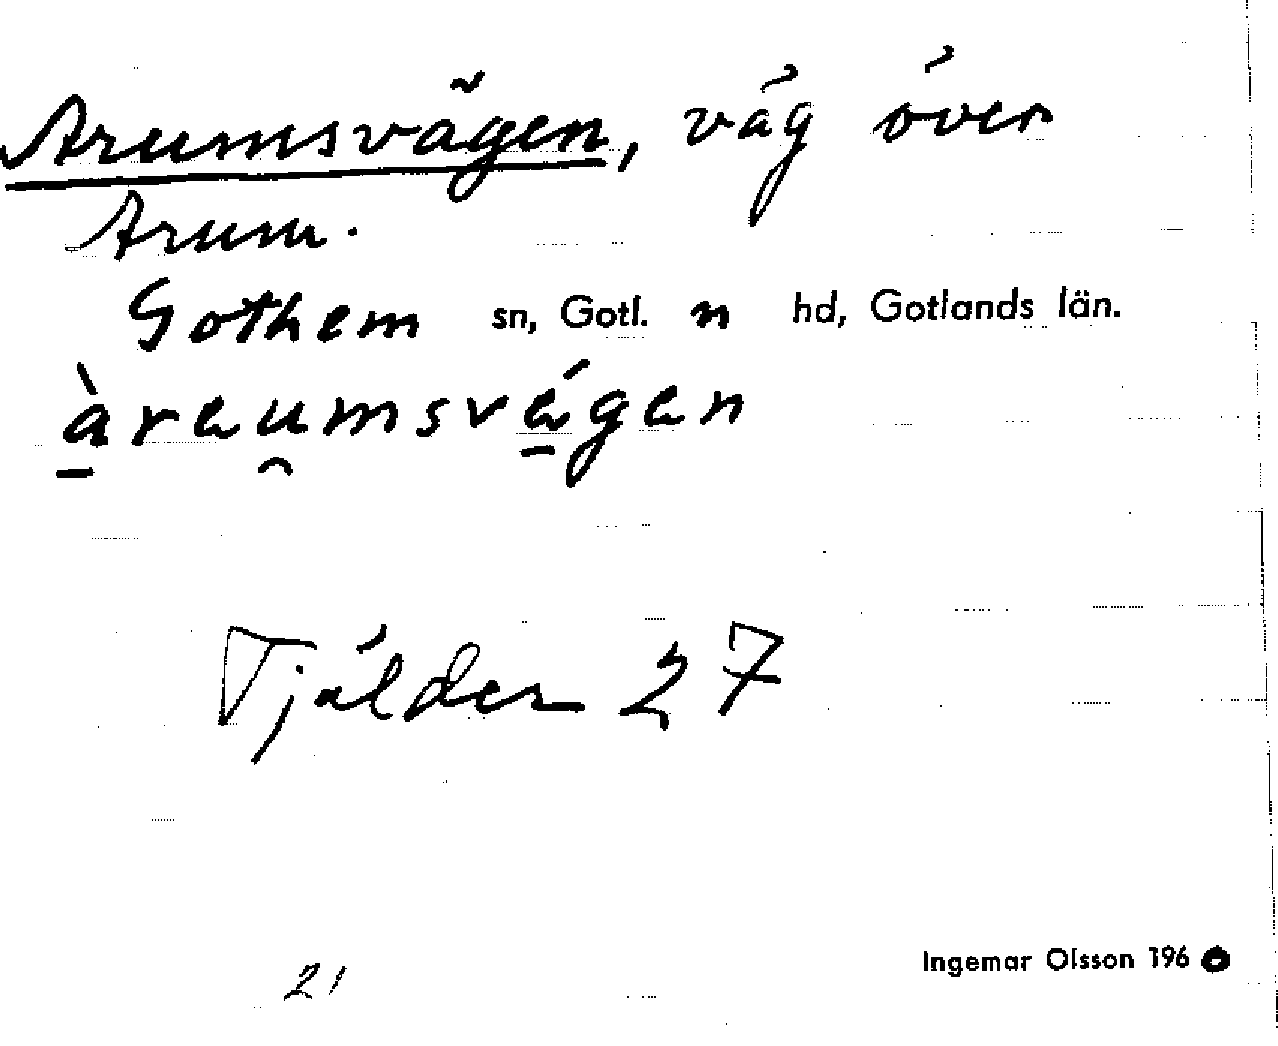 Arumsvägen, väg över
Arum.
Gothem sn, Gotl. n hd, Gotlands län.
àraumsvägan
Tjälder 27
21
Ingemar Olsson 196